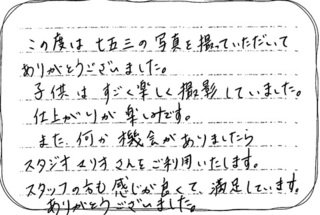 この度は 七五三の写真を撮っていただいて
ありがとうございました。
子供は すごく楽しく撮影していました。
仕上がりが 楽しみです。
また、何か 機会がありましたら
スタジオマリオさんをご利用いたします。
スタッフの方も 感じが良くて、満足しています。
ありがとうございました。